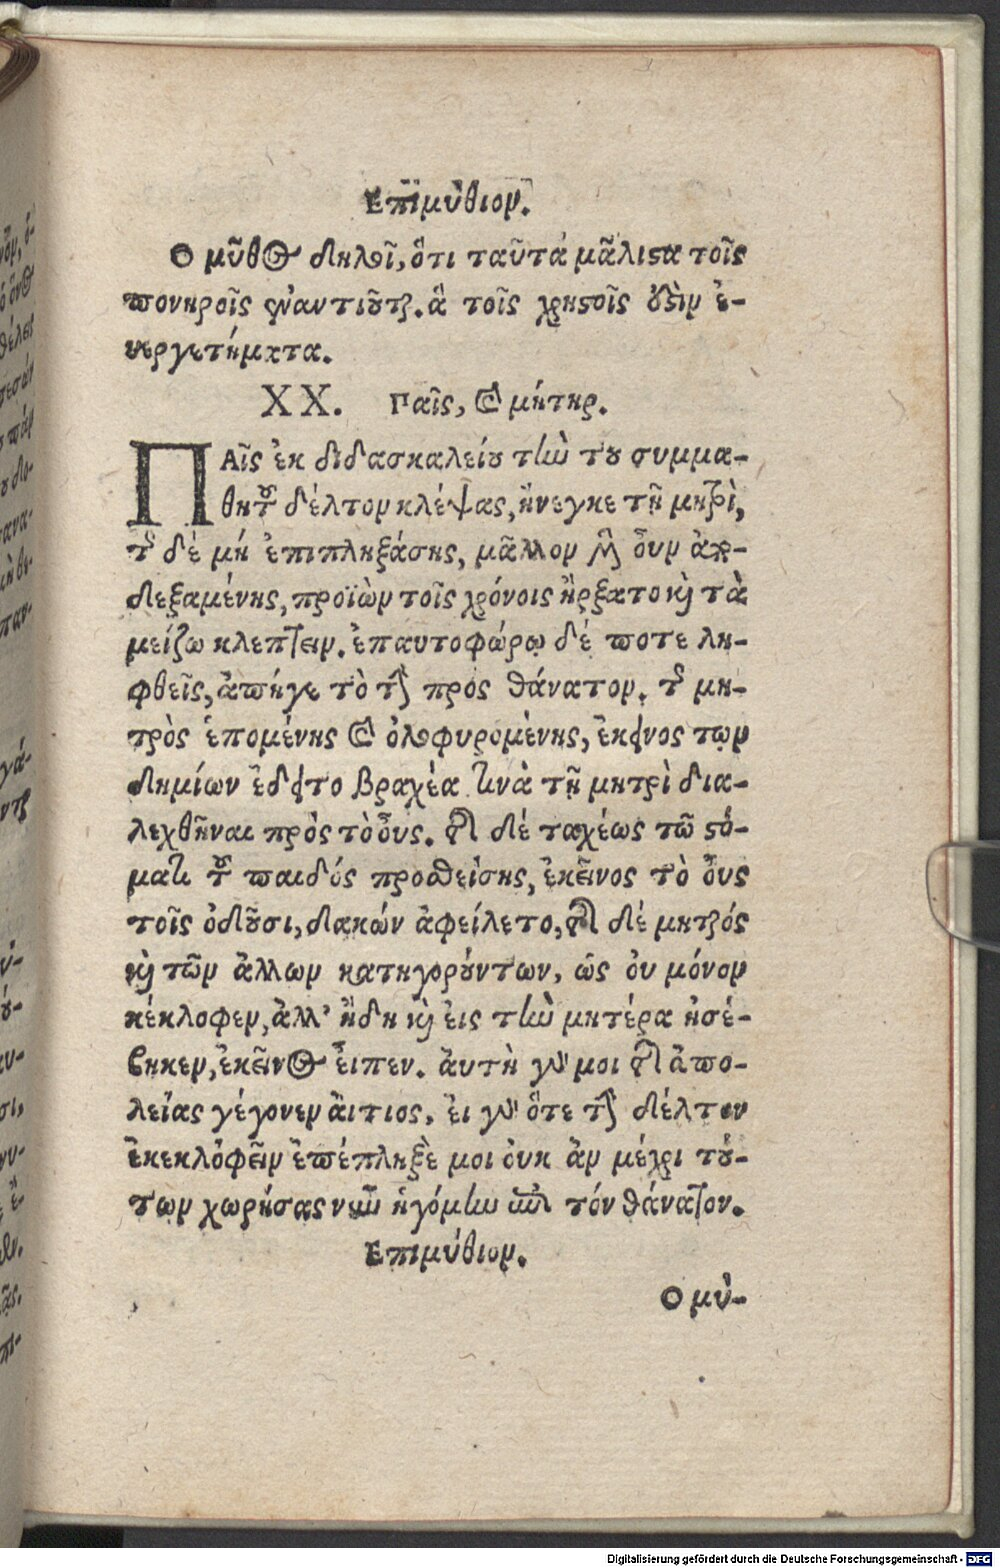 Επιμύθιον.
Ο μῦθος δηλοῖ, ὅτι ταῦτά μᾶλιστα τοῖς
πονηροῖς ἐναντιοῦται. ἃ τοῖς χρηστοῖς οὖσιν ἐ-
υεργετήματα.
XX. Παῖς, καὶ μήτηρ.
ΠΑῖς ἐκ διδασκαλείου τὴν του συμμα-
θητοῦ δέλτον κλέψας, ἤνεγκε τῇ μητρὶ,
τῆς δέ μή ἐπιπληξάσης, μᾶλλον μὲν οὖν ἀπο-
δεξαμένης, προϊὼν τοῖς χρόνοις ἤρξατο καὶ τὰ
μείζω κλεπτειν. ἐπαυτοφώρῳ δέ ποτε λη-
φθεῖς, ἀπήγε τὸ τὴν πρὸς θάνατον. τῆς μη-
τρὸς ἑπομένης καὶ ὀλοφυρομένης, ἐκεῖνος τῶν
δημίων ἐδεῖτο βραχέα τινὰ τῇ μητρὶ δια-
λεχθῆναι πρὸς τὸ οὖς. τῆς δέ ταχέως τῶ στό-
ματι τοῦ παιδός προσθείσης, ἐκεῖνος τὸ οὖς
τοῖς ὀδοῦσι, δακών ἀφείλετο, τῆς δέ μητρός
καὶ τῶν ἄλλων κατηγορούντων, ὡς οὐ μόνον
κέκλοφεν, ἀλλ' ἤδη καὶ εις τὴν μητέρα ἠσέ-
βηκεν, ἐκεῖνος εἶπεν. ἀυτὴ γάρ μοι τῆς ἀπο-
λείας γέγονεν ἄιτιος, ἐι γάρ ὅτε τὴν δέλτον
ἐκεκλόφειν ἐπέπληξὲ μοι ὀυκ ἀν μέχρι τού-
των χωρήσας νῦν ἠγόμην ἐπὶ τόν θάνατον.
Επιμύθιον.
Ο μύ-
Digitalisierung gefördert durch die Deutsche Forschungsgemeinschaft - DFG